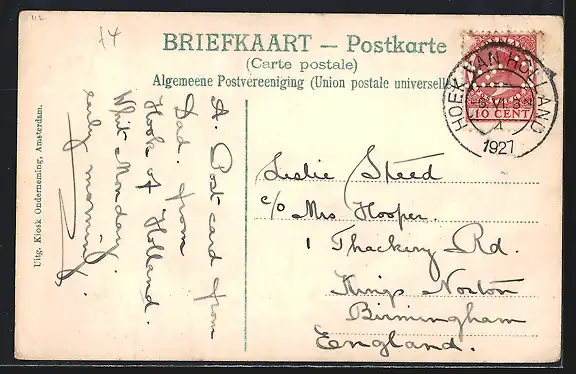 112
f4
BRIEFKAART — Postkarte
(Carte postale)
Algemeene Postvereeniging (Union postale universelle)
HOEK VAN HOLLAND
10 CENT
1927
A. Post card from
Dad. from
Hook of Holland.
Whit Monday.
early morning.
Leslie Steed
c/o Mrs Hooper.
1 Thackery Rd.
Kings Norton
Birmingham
England.
Uitg. Kiosk Onderneming, Amsterdam.